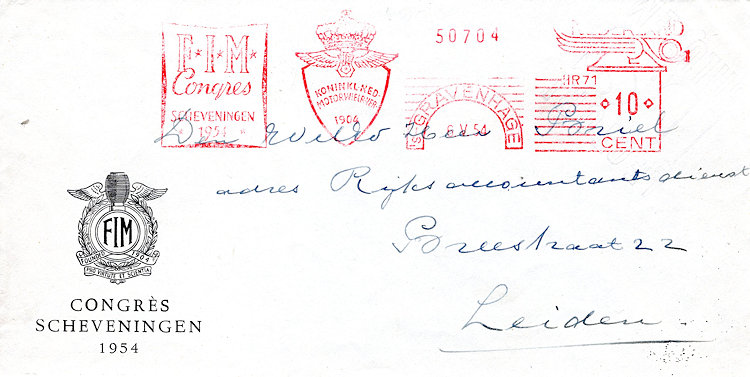 F.I.M.
Congres
SCHEVENINGEN
1954
KONINKL. NED.
MOTORWIELR. VER.
1904
50704
'S GRAVENHAGE
6.V.54
HR71
10
CENT
Den Heer
adres Rijksaccountantsdienst
Breestraat 22
Leiden
FIM
FOUNDED 1904
PRO VIRTUTE ET SCIENTIA
CONGRÈS
SCHEVENINGEN
1954